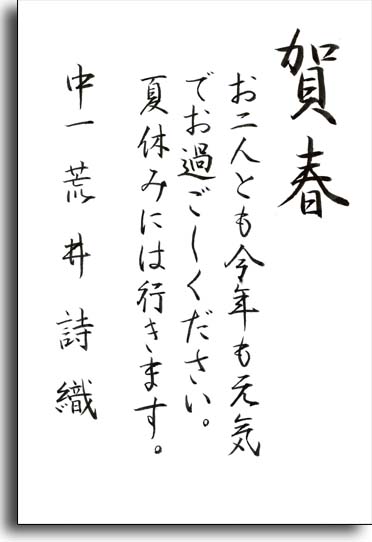 賀春
お二人とも今年も元気
でお過ごしください。
夏休みには行きます。
中一 荒井詩織